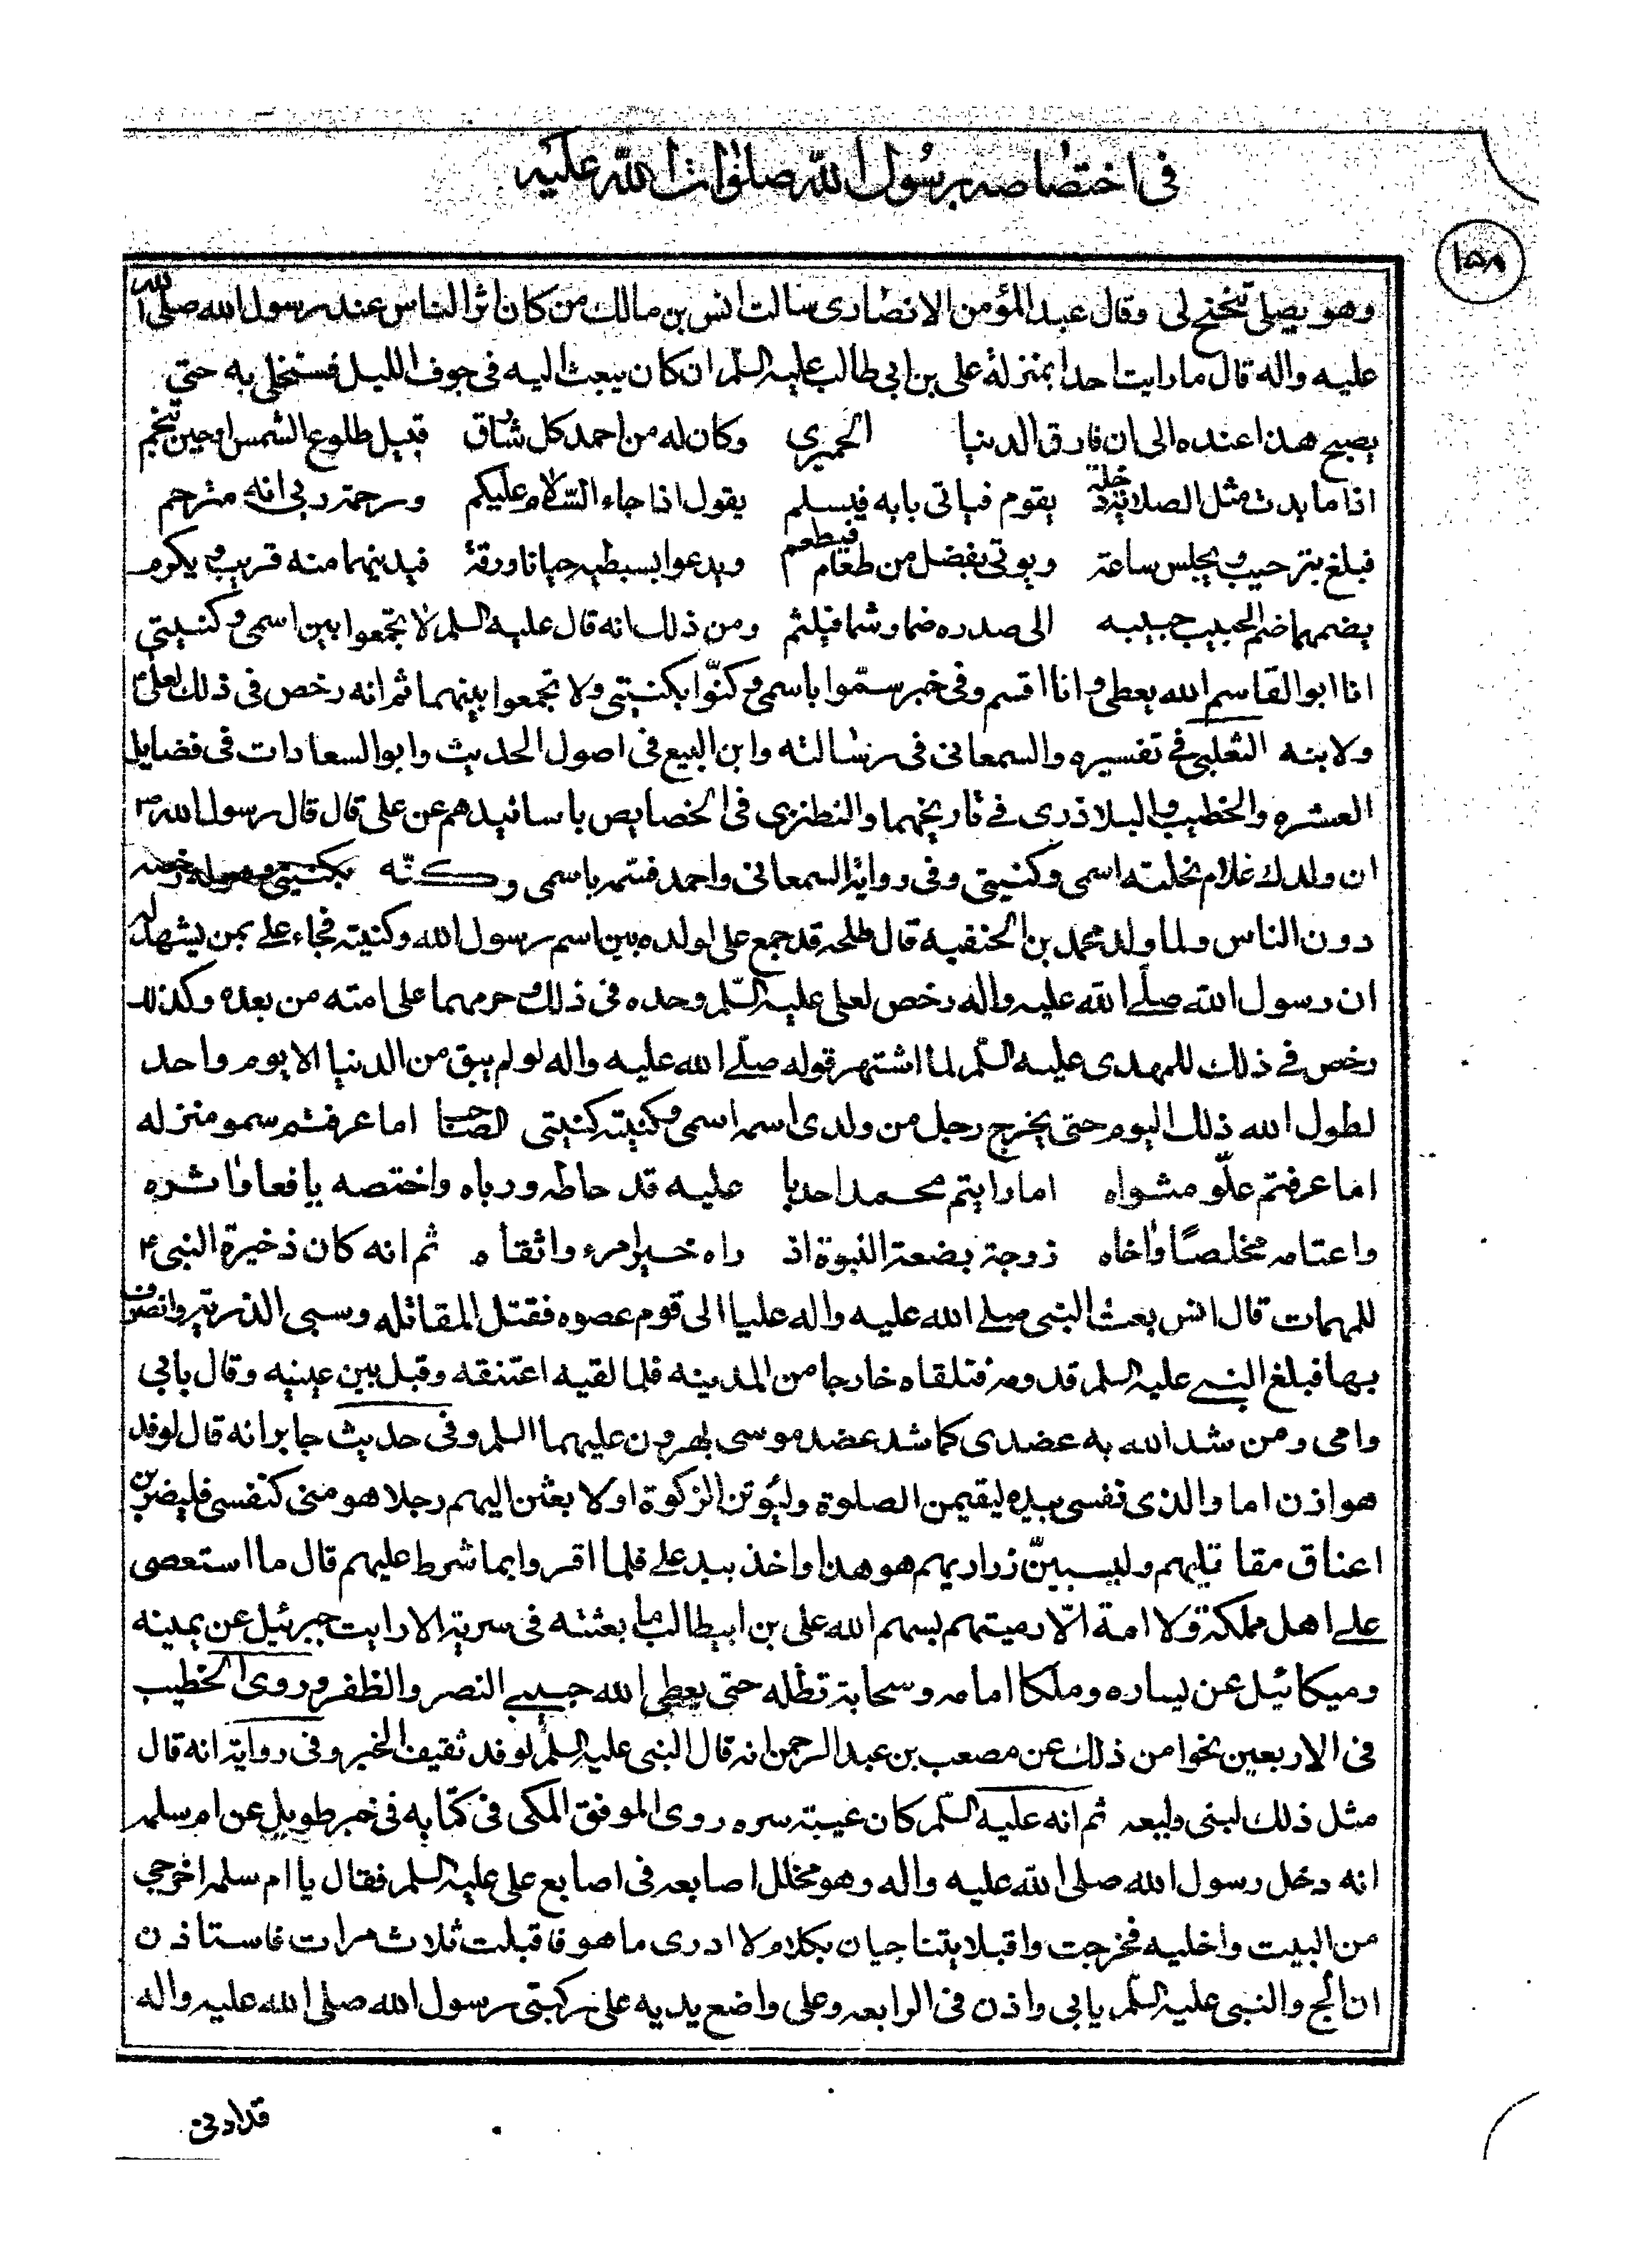 في اختصاصه برسول الله صلوات الله عليه
١٥٨
وهو يصلى تنحنح لى وقال عبد المؤمن الانصارى سالت انس بن مالك من كان اثر الناس عند رسول الله صلى الله
عليه واله قال ما رايت احدا بمنزلة على بن ابى طالب عليه السلم ان كان يبعث اليه فى جوف الليل فستخلى به حتى
يصبح هذا عنده الى ان فارق الدنيا الحميرى وكان له من احمد كل شاق قبيل طلوع الشمس او حين تنجم
اذا ما بدت مثل الصلاية يقوم فياتى بابه فيسلم يقول اذا جاء السلام عليكم ورحمة ربى انه مترحم
فبلغ بترحيب ويجلس ساعة ويوتى بفضل من طعام فيطعم ويدعوا بسبطيه حنانا ورقة فيدنيهما منه قريب ويكرم
يضمهما ضم الحبيب حبيبه الى صدره ضما وشما فيلثم ومن ذلك انه قال عليه السلم لا تجمعوا بين اسمى وكنيتى
انا ابو القاسم الله يعطى وانا اقسم وفى خبر سموا باسمى وكنوا بكنيتى ولا تجمعوا بينهما ثم انه رخص فى ذلك لعلى
ولابنه الثعلبى فى تفسيره والسمعانى فى رسالته وابن البيع فى اصول الحديث وابو السعادات فى فضايل
العشره والخطيب والبلاذرى فى تاريخهما والنطنزى فى الخصايص باسانيدهم عن على قال قال رسول الله ص
ان ولد لك غلام نحلته اسمى وكنيتى وفى رواية السمعانى واحمد فسمه باسمى وكنه بكنيتى وهو له رخصه
دون الناس ولما ولد محمد بن الحنفيه قال طلحه قد جمع على لولده بين اسم رسول الله وكنيته فجاء على بمن يشهد له
ان رسول الله صلى الله عليه واله رخص لعلى عليه السلم وحده فى ذلك وحرمهما على امته من بعده وكذلك
رخص فى ذلك للمهدى عليه السلم لما اشتهر قوله صلى الله عليه واله لو لم يبق من الدنيا الا يوم واحد
لطول الله ذلك اليوم حتى يخرج رجل من ولدى اسمه اسمى وكنيته كنيتى الصاحب اما عرفتم سمو منزله
اما عرفتم علو مثواه اما رايتم محمدا حدبا عليه قد حاطه ورباه واختصه يافعا واثره
واعتامه مخلصا واخاه زوجة بضعة النبوة اذ راه خير امرء واتقاه ثم انه كان ذخيرة النبى ع
للمهمات قال انس بعث النبى صلى الله عليه واله عليا الى قوم عصوه فقتل المقاتله وسبى الذرية وانصرف
بها فبلغ النبى عليه السلم قدومه فتلقاه خارجا من المدينه فلما لقيه اعتنقه وقبل بين عينيه وقال بابى
وامى ومن شد الله به عضدى كما شد عضد موسى بهرون عليهما السلم وفى حديث جابر انه قال لوفد
هوازن اما والذى نفسى بيده ليقيمن الصلوة وليوتن الزكوة او لا بعثن اليهم رجلا هو منى كنفسى فليضربن
اعناق مقاتليهم وليسبين ذراريهم هو هذا واخذ بيد على فلما اقروا بما شرط عليهم قال ما استعصى
على اهل مملكة ولا امة الا رميتهم بسهم الله على بن ابيطالب ما بعثته فى سرية الا رايت جبرئيل عن يمينه
وميكائيل عن يساره وملكا امامه وسحابة تظله حتى يعطى الله حبيبى النصر والظفر وروى الخطيب
فى الاربعين نحوا من ذلك عن مصعب بن عبد الرحمن انه قال النبى عليه السلم لوفد ثقيف الخبر وفى رواية انه قال
مثل ذلك لبنى وليعه ثم انه عليه السلم كان عيبة سره روى الموفق المكى فى كتابه فى خبر طويل عن ام سلمه
انه دخل رسول الله صلى الله عليه واله وهو مخلل اصابعه فى اصابع على عليه السلم فقال يا ام سلمه اخرجى
من البيت واخليه فخرجت واقبلا يتناجيان بكلام لا ادرى ما هو فاقبلت ثلاث مرات فاستاذن
ان الج والنبى عليه السلم يابى واذن فى الرابعه وعلى واضع يديه على ركبتى رسول الله صلى الله عليه واله
قد ادنى